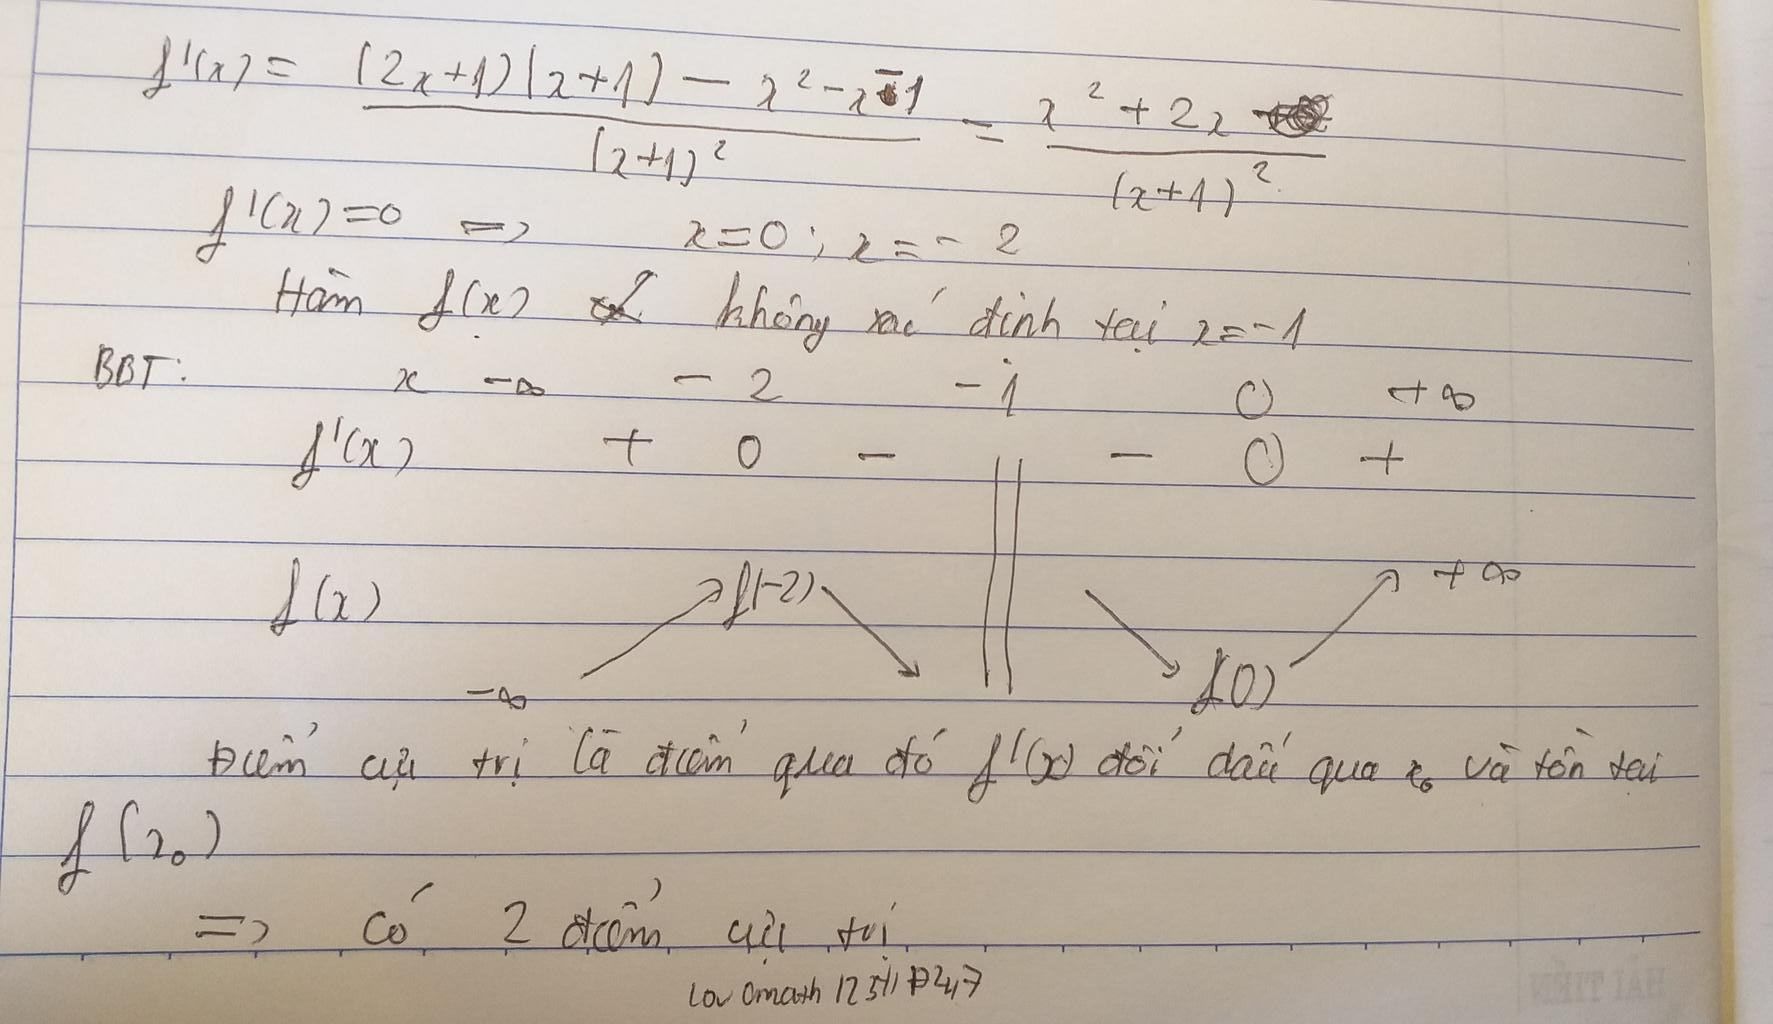 f'(x) = \frac{(2x+1)(x+1) - x² - x - 1}{(x+1)²} = \frac{x² + 2x}{(x+1)²}
f'(x) = 0 => x = 0 ; x = - 2
Hàm f(x) không xác định tại x = -1
BBT: x -∞ - 2 - 1 0 + ∞
f'(x) + 0 - || - 0 +
f(x) -∞ ↗ f(-2) ↘ || ↘ f(0) ↗ + ∞
Điểm cực trị là điểm qua đó f'(x) đổi dấu qua x₀ và tồn tại
f(x₀)
=> Có 2 điểm cực trị